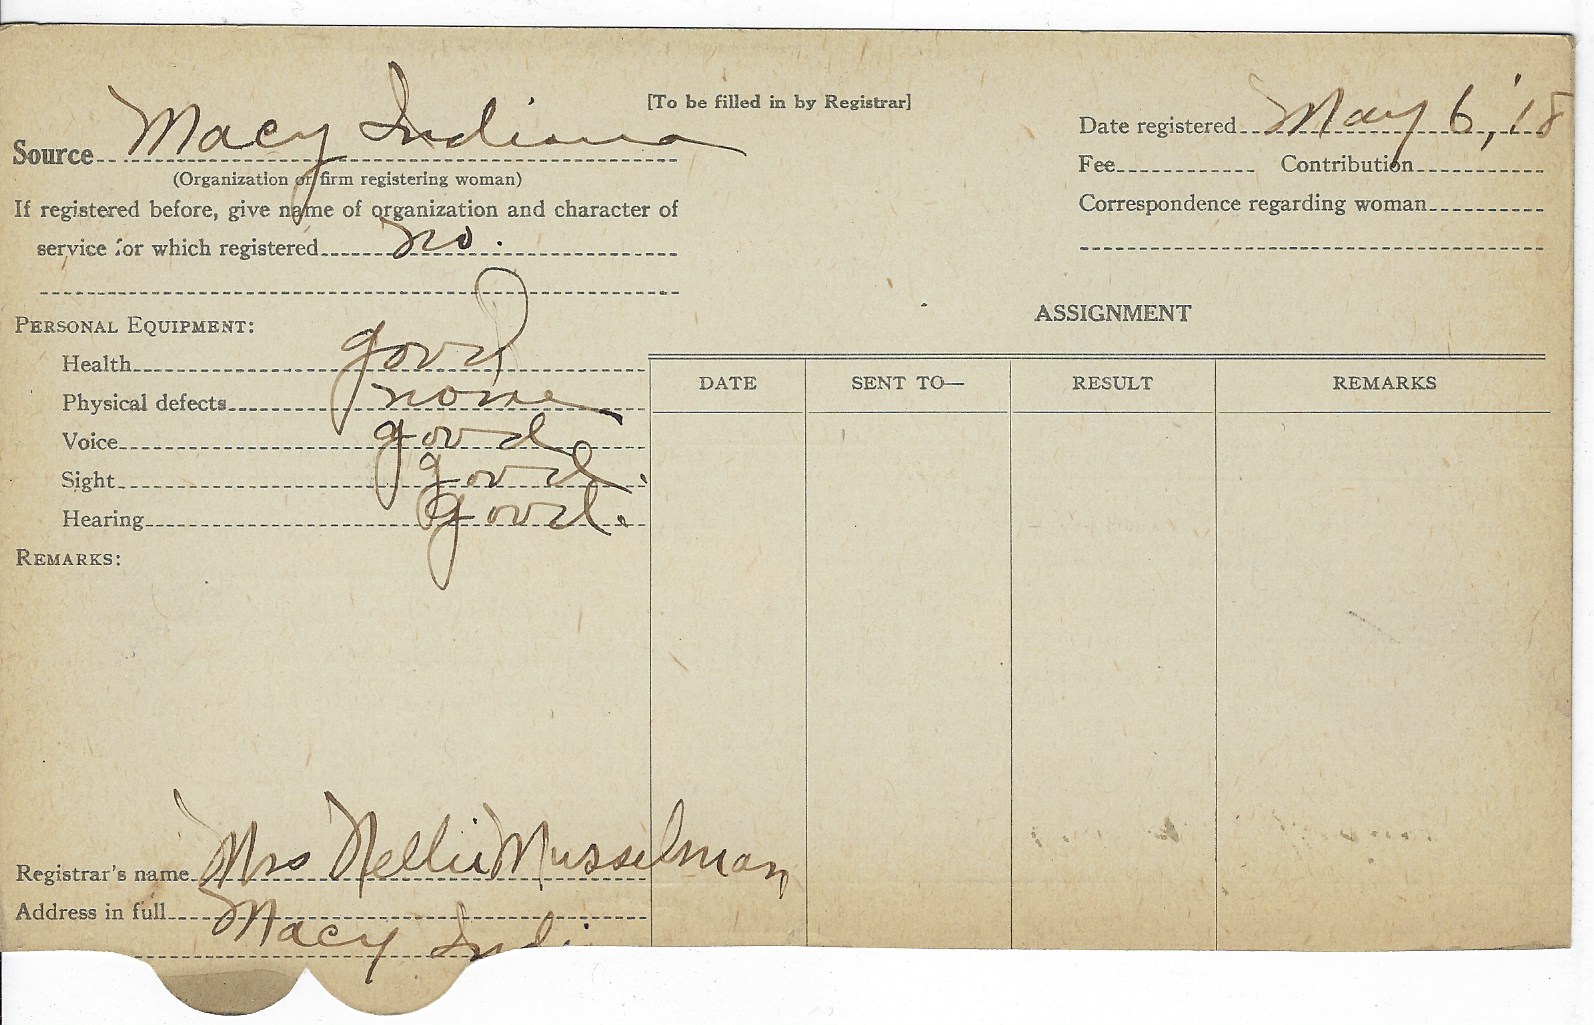 [To be filled in by Registrar]
Source Macy Indiana
(Organization or firm registering woman)
If registered before, give name of organization and character of
service for which registered no.
Date registered May 6, '18
Fee Contribution
Correspondence regarding woman
PERSONAL EQUIPMENT:
Health good
Physical defects none
Voice good
Sight good.
Hearing good.
REMARKS:
ASSIGNMENT
DATE SENT TO— RESULT REMARKS
Registrar's name Mrs Nellie Musselman
Address in full Macy Indi